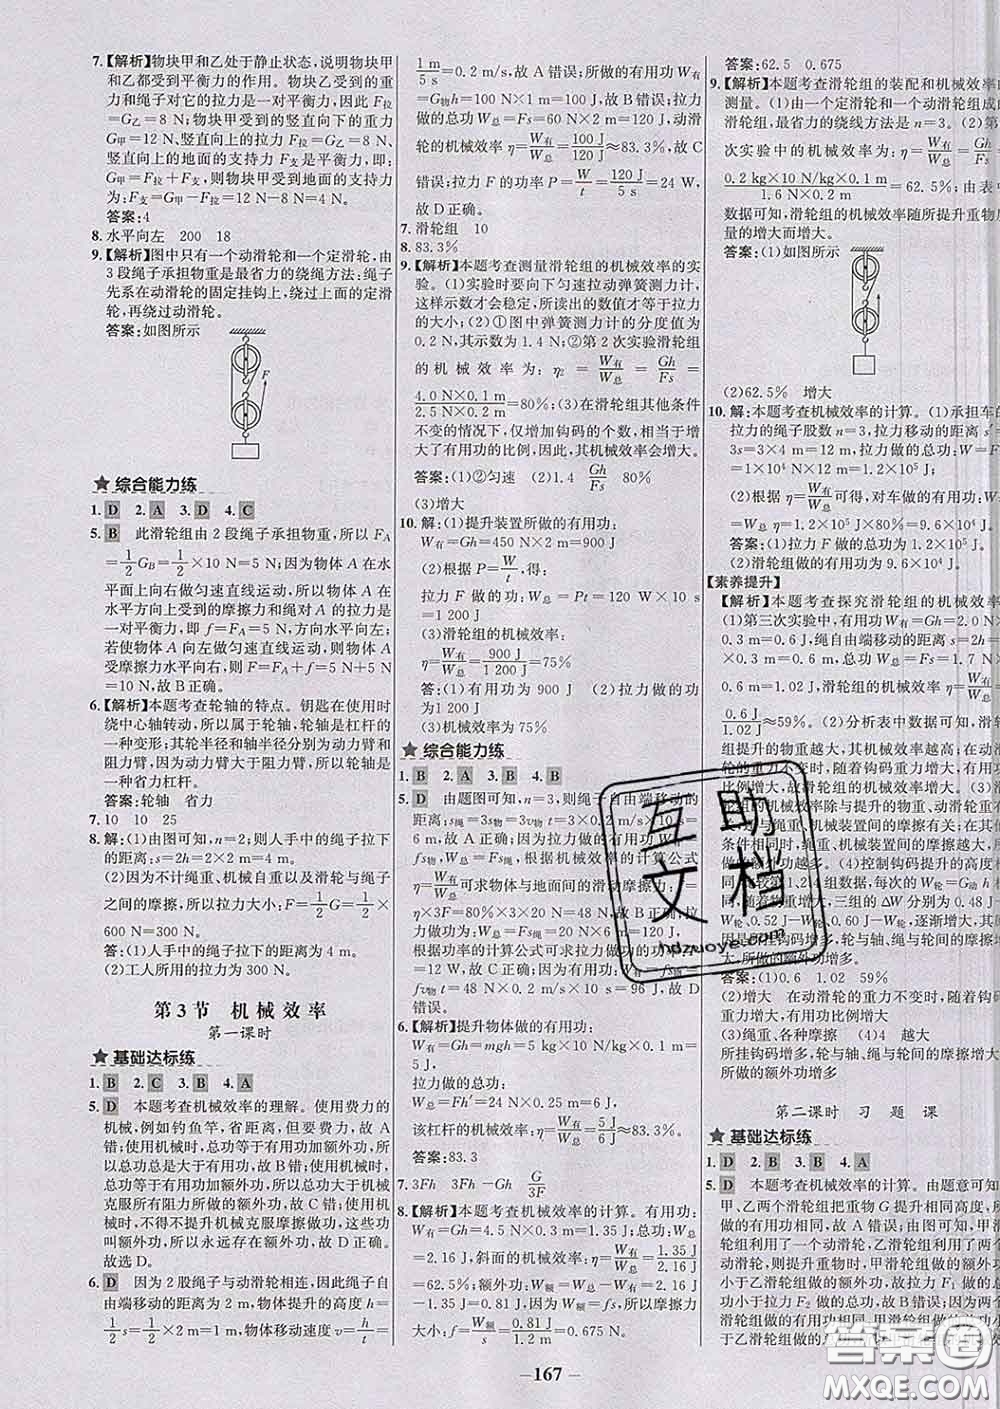 7.【解析】物块甲和乙处于静止状态,说明物块甲
和乙都受到平衡力的作用。物块乙受到的重
力和绳子对它的拉力是一对平衡力,因此 F拉
=G乙=8 N,物块甲受到的竖直向下的重力
G甲=12 N,竖直向上的拉力 F拉=G乙=8 N,
竖直向上的地面的支持力 F支是平衡力,即:
G甲=F拉+F支;则物块甲受到地面的支持力
为:F支=G甲-F拉=12 N-8 N=4 N。
答案:4
8. 水平向左 200 18
9.【解析】图中只有一个动滑轮和一个定滑轮,由
3 段绳子承担物重是最省力的绕绳方法:绳子
先系在动滑轮的固定挂钩上,绕过上面的定滑
轮,再绕过动滑轮。
答案:如图所示
F
★综合能力练
1. D 2. A 3. D 4. C
5. B 此滑轮组由 2 段绳子承担物重,所以 FA
=1/2 GB=1/2×10 N=5 N。因为物体 A 在水
平面上向右做匀速直线运动,所以物体 A 在
水平方向上受到的摩擦力和绳对 A 的拉力是
一对平衡力,即 f=FA=5 N,方向水平向左;
若使物体 A 向左做匀速直线运动,则物体 A
受摩擦力水平向右,则 F=FA+f=5 N+5 N
=10 N。故 B 正确。
6.【解析】本题考查轮轴的特点。钥匙在使用时
绕中心轴转动,所以属于轮轴,轮轴是杠杆的
一种变形;其轮半径和轴半径分别为动力臂和
阻力臂,因为动力臂大于阻力臂,所以轮轴是
一种省力杠杆。
答案:轮轴 省力
7. 10 10 25
8. 解:(1)由图可知,n=2;则人手中的绳子拉下
的距离:s=2h=2×2 m=4 m。
(2)因为不计绳重、机械自重以及滑轮与绳子
之间的摩擦,所以拉力的大小:F=1/2 G=1/2×
600 N=300 N。
答:(1)人手中的绳子拉下的距离为 4 m。
(2)工人所用的拉力为 300 N。
第 3 节 机械效率
第一课时
★基础达标练
1. B 2. C 3. B 4. A
5. D 本题考查机械效率的理解。使用费力的
机械,例如钓鱼竿,省距离,但要费力,故 A
错;使用机械时,总功等于有用功加额外功,所
以总功总是大于有用功,故 B 错;使用机械克
服所有阻力做的功是总功,故 C 错;使用机械
时,不得不提升机械克服摩擦做功,这些功
叫额外功,所以永远存在额外功。故 D 正确。
故选 D。
6. D 因为 2 股绳子与动滑轮相连,因此绳子自
由端移动的距离为 2 m,物体提升的高度 h=
1/2 s=1/2×2 m=1 m,物体移动速度 v=h/t=
1 m/5 s=0.2 m/s,故 A 错误;所做的有用功 W有
=G物h=100 N×1 m=100 J,故 B 错误;拉力
做的总功 W总=Fs=60 N×2 m=120 J,动滑
轮的机械效率 η=W有/W总=100 J/120 J≈83.3%,故 C
错误;拉力 F 的功率 P=W/t=120 J/5 s=24 W,
故 D 正确。
7. 滑轮组 10
8. 83.3%
9.【解析】本题考查测量滑轮组的机械效率的实
验。(1)实验时要向下匀速拉动弹簧测力计,
这样示数才会稳定,所读出的数值才等于拉力
的大小;(2)①图中弹簧测力计的分度值为
0.2 N,其示数为 1.4 N;②第 2 次实验滑轮组
的机械效率为:η2=W有/W总=Gh/Fs=
4.0 N×0.1 m/2.5 N×0.2 m=80%;(3)在滑轮组其他条件
不变的情况下,仅增加钩码的个数,相当于增
大了有用功的比例,因此,其机械效率会增大。
答案:(1)②匀速 (2)1.4 Gh/Fs 80%
(3)增大
10. 解:(1)提升装置所做的有用功:
W有=Gh=450 N×2 m=900 J
(2)根据 P=W/t,得:
拉力 F 做的总功:W总=Pt=120 W×10 s
=1 200 J
(3)滑轮组的机械效率:
η=W有/W总=900 J/1 200 J=75%
答:(1)有用功为 900 J (2)拉力做的功
为1 200 J
(3)机械效率为 75%
★综合能力练
1. B 2. A 3. B 4. B
5. D 由题图可知,n=3,则绳子自由端移动的
距离:s绳=3s物=3v物t=3×
6 m,故 A 错误;有用功 W
fs物,W总=Fs绳,根据机械效率的计算公式
W有/W总可求物体与地面间的滑动摩擦力:f=
η×3F=80%×3×
做功为:W有=fs物=
根据功率的计算公式可求拉力做功的功率
=12 W,故
错误。
6.【解析】提升物体做的有用功:
W有=Gh=mgh=
5 J,
拉力做的总功:
W总=Fh′=0.24 m×25 N=6 J,
该杠杆的机械效率:η=W有/W总=5 J/6 J≈83.3%。
答案:83.3
7. 3Fh 3Fh-Gh G/3F
8.【解析】本题考查机械效率的计算。有用功:
W有=Gh=4.5 N×0.3 m=1.35 J;总功:W总
=2.16 J,斜面的机械效率:η=W有/W总=1.35 J/2.16 J=
62.5%;额外功:W额=W总-W有=2.16 J
-1.35 J=0.81 J,因为 W额=fs,所以摩擦力
大小:f=W额/s=0.81 J/1.2 m=0.675 N。
答案:62.5 0.675
9.【解析】本题考查滑轮组的装配和机械效率的
测量。(1)由一个定滑轮和一个动滑轮组成的
滑轮组,最省力的绕线方法是 n=3。(2)第
次实验中的机械效率为:η=W有/W总=Gh/Fs
0.2 kg×10 N/kg×0.1 m/1.6 N×0.2 m=62.5%;由表中
数据可知,滑轮组的机械效率随所提升重物质
量的增大而增大。
答案:(1)如图所示
(2)62.5% 增大
10. 解:本题考查机械效率的计算。(1)承担车的
拉力的绳子股数 n=3,拉力移动的距离 s′=
3s=3×4 m=12 m,拉力做的总功:W总=
=1×10⁴ N×12 m=1.2×10⁵ J
(2)根据 η=W有/W总可得,对车所做的有用功:W有
W总=1.2×10⁵ J×80%=9.6×10⁴ J
答案:(1)拉力 F 做的总功为1.2×10⁵ J
(2)滑轮组对车所做的有用功为9.6×10⁴ J
【素养提升】
【解析】本题考查探究滑轮组的机械效率
(1)第三次实验中,有用功:W有=Gh=2.0 N×
0.3 m=0.6 J,绳自由端移动的距离:s=
=0.6 m,总功 W总=Fs=1.7 N×
0.6 m=1.02 J,机械效率:η=W有/W总
0.6 J/1.02 J≈59%。(2)分析表中数据可知,
组提升的物重越大,其机械效率越高;在动滑
轮的重力不变时,
比例增大,所以机械效率增大。(3)
轮的机械效率除与提升的物重、动滑轮重
,还与绳重、机械装置间的摩擦有关;在其他
条件相同时,机械装置间的摩擦越大,
做的额外功越多。(4)控制钩码提升的高度相
同,比较第1、2、4组数据,每次的 W轮=G动h相
同,三组的 ΔW 分别为 0.48 J-
W轮、0.52 J-W轮、0.60 J-W轮,逐渐增大,其
原因是所挂钩码增多,轮与轴、绳与轮间的摩
擦增大,所做的额外功增多。
答案:(1)0.6 1.02 59%
(2)增大 在动滑轮的重力不变时,
(3)绳重、各种摩擦 (4)4 越大
所挂钩码增多,轮与轴、绳与轮间的摩擦增大,
所做的额外功增多
第二课时 习题课
★基础达标练
1. D 2. B 3. B 4. A
5. D 本题考查机械效率的计算。由题意可知,
甲、乙两个滑轮组把重物 G 提升相同高度,所
做的有用功相同,故 A 错误。由图可知,甲滑
轮组使用了一个动滑轮,乙滑轮组使用了两个
动滑轮,则提升重物时,甲滑轮组做的额外功
小于乙滑轮组做的额外功,故拉力 F1 做的总功
小于拉力 F2 做的总功,
相同,甲滑轮组做的总功小
于乙滑轮组做的总功,由 η=
互助文档
hdzuoye.com
答案圈
MXQE.COM
— 167 —